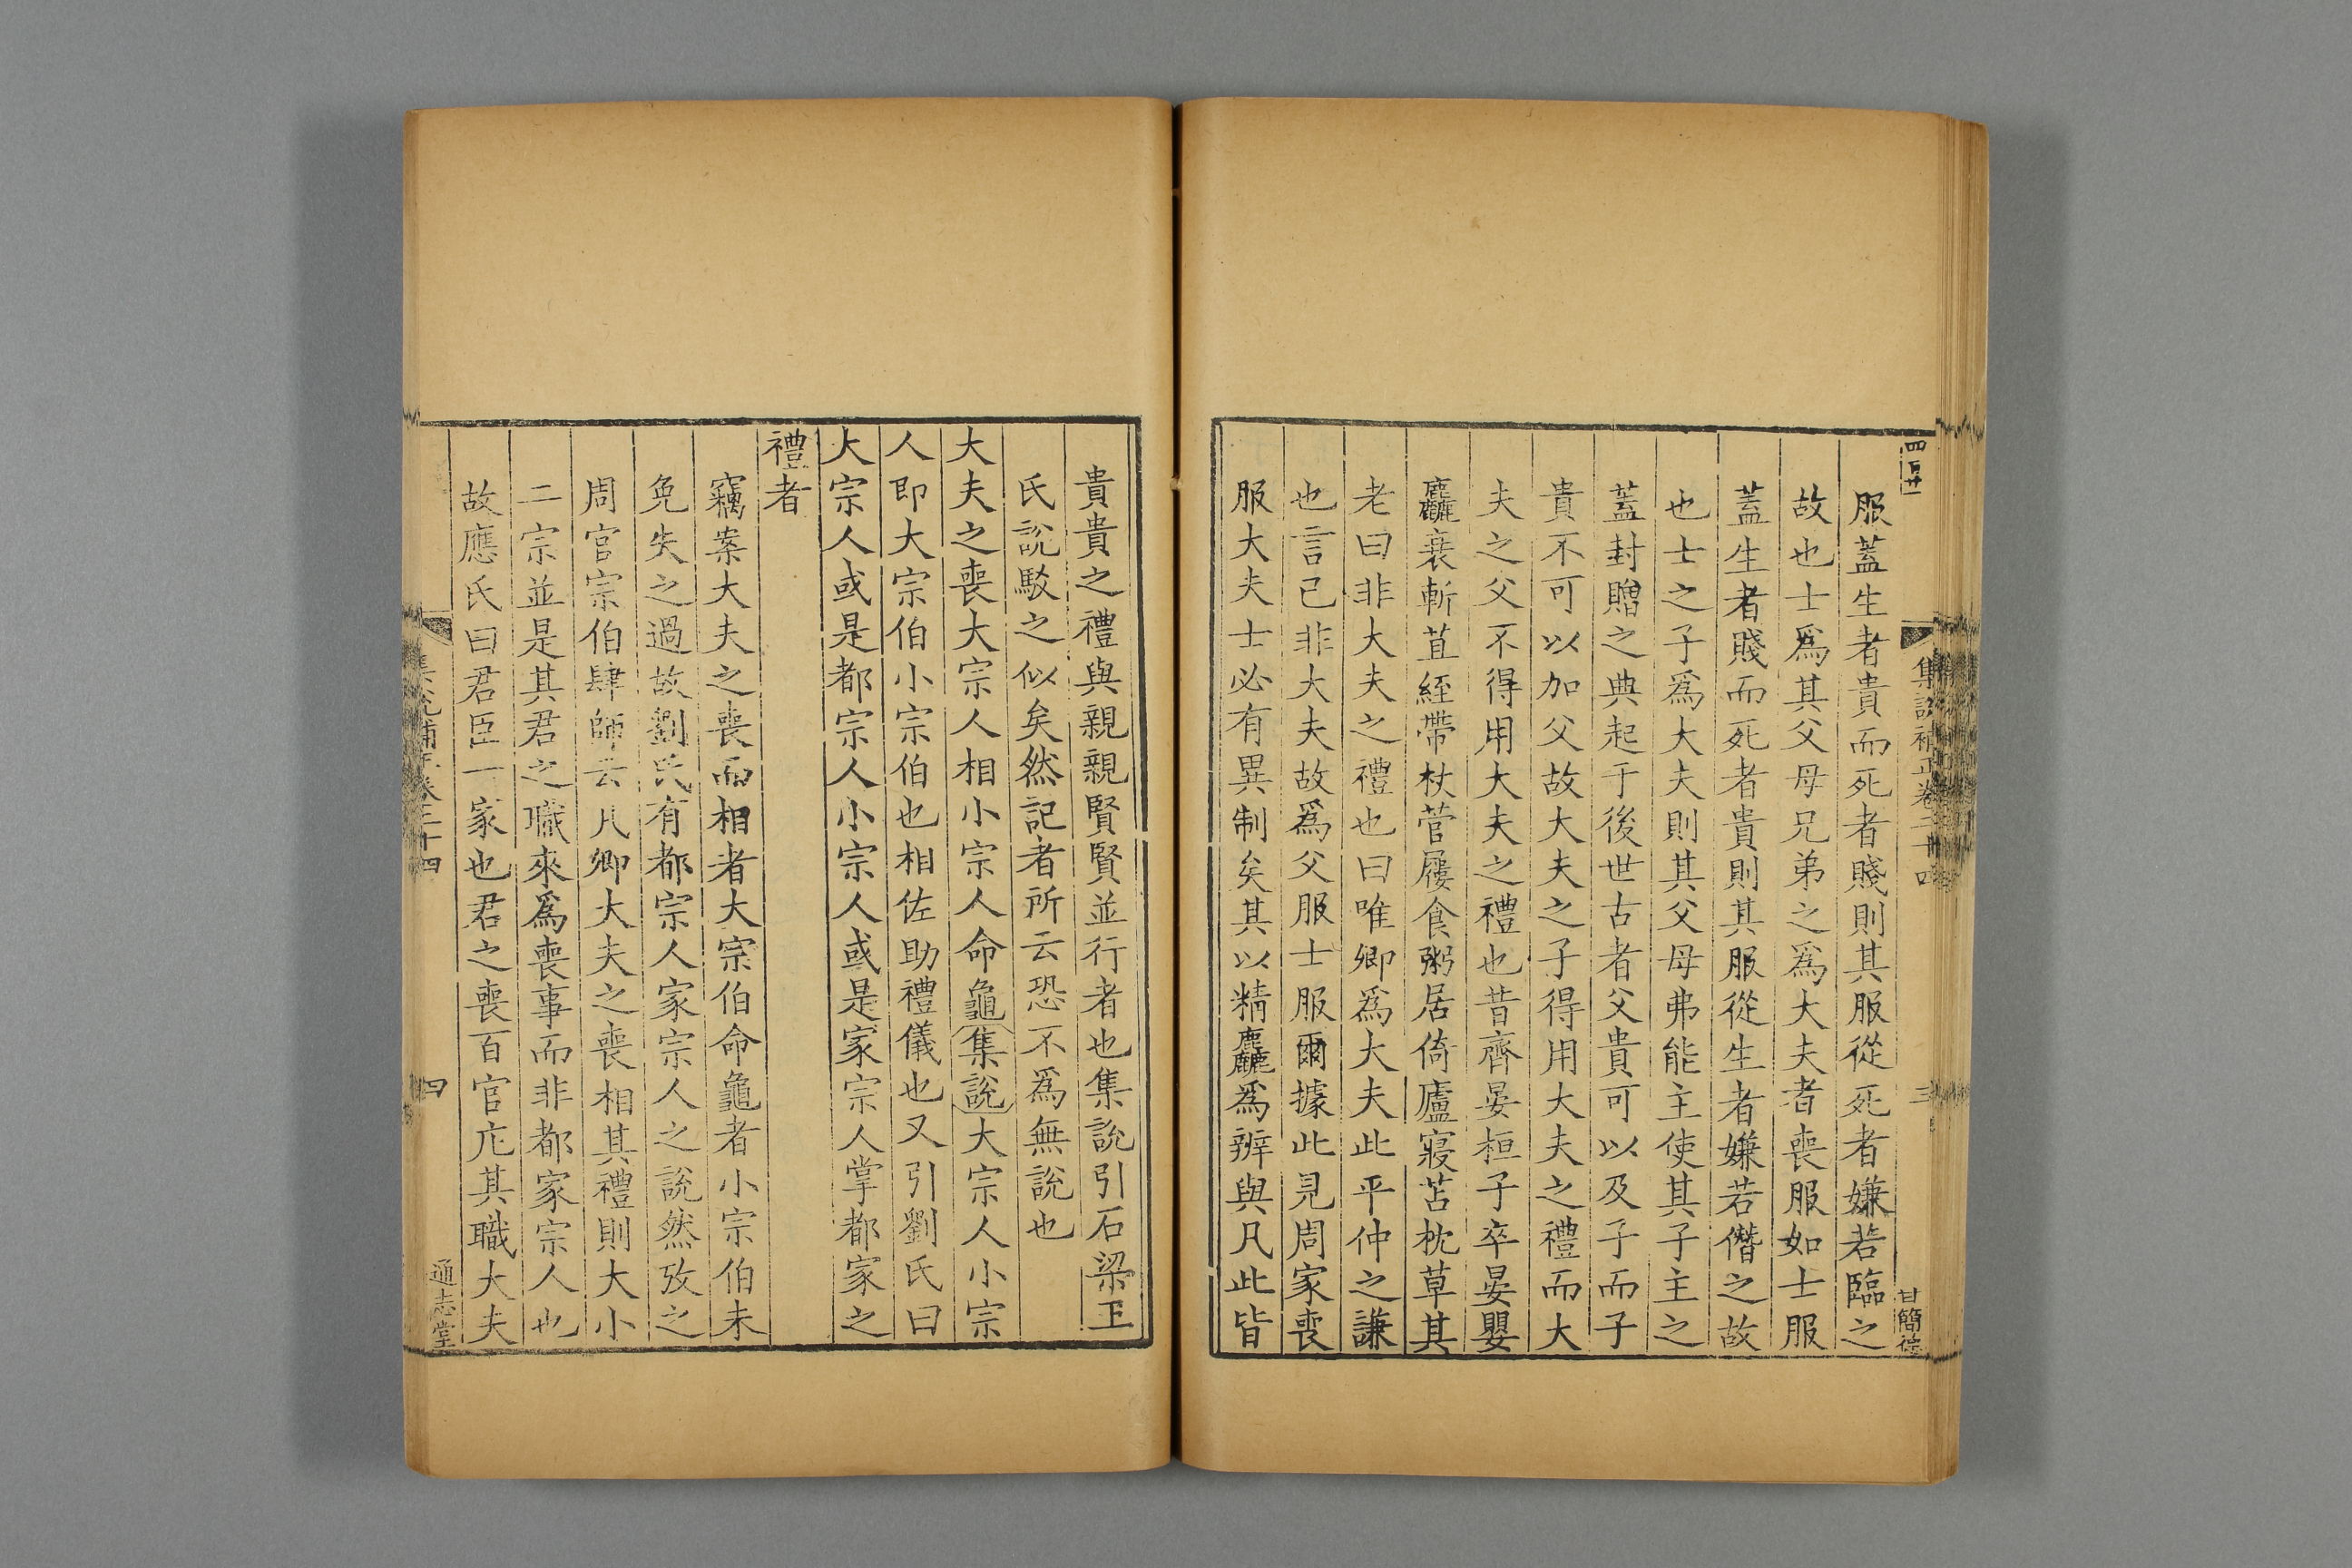 服蓋生者貴而死者賤則其服從死者嫌若臨之
故也士爲其父母兄弟之爲大夫者喪服如士服
蓋生者賤而死者貴則其服從生者嫌若僭之故
也士之子爲大夫則其父母弗能主使其子主之
蓋封贈之典起于後世古者父貴可以及子而子
貴不可以加父故大夫之子得用大夫之禮而大
夫之父不得用大夫之禮也昔齊晏桓子卒晏嬰
麤衰斬苴絰帶杖菅屨食粥居倚廬寢苫枕草其
老曰非大夫之禮也曰唯卿爲大夫此平仲之謙
也言己非大夫故爲父服士服爾據此見周家喪
服大夫士必有異制矣其以精麤爲辨與凡此皆
貴貴之禮與親親賢賢並行者也集說引石梁王
氏說駁之似矣然記者所云恐不爲無說也
大夫之喪大宗人相小宗人命龜集說大宗人小宗
人即大宗伯小宗伯也相佐助禮儀也又引劉氏曰
大宗人或是都宗人小宗人或是家宗人掌都家之
禮者
竊案大夫之喪而相者大宗伯命龜者小宗伯未
免失之過故劉氏有都宗人家宗人之說然攷之
周官宗伯肆師云凡卿大夫之喪相其禮則大小
二宗並是其君之職來爲喪事而非都家宗人也
故應氏曰君臣一家也君之喪百官庀其職大夫
集說補正卷三十四
四
通志堂